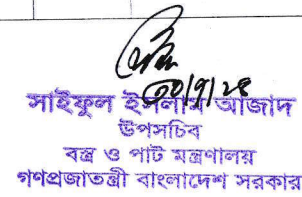 ৩০/৭/২৪
সাইফুল ইসলাম আজাদ
উপসচিব
বস্ত্র ও পাট মন্ত্রণালয়
গণপ্রজাতন্ত্রী বাংলাদেশ সরকার